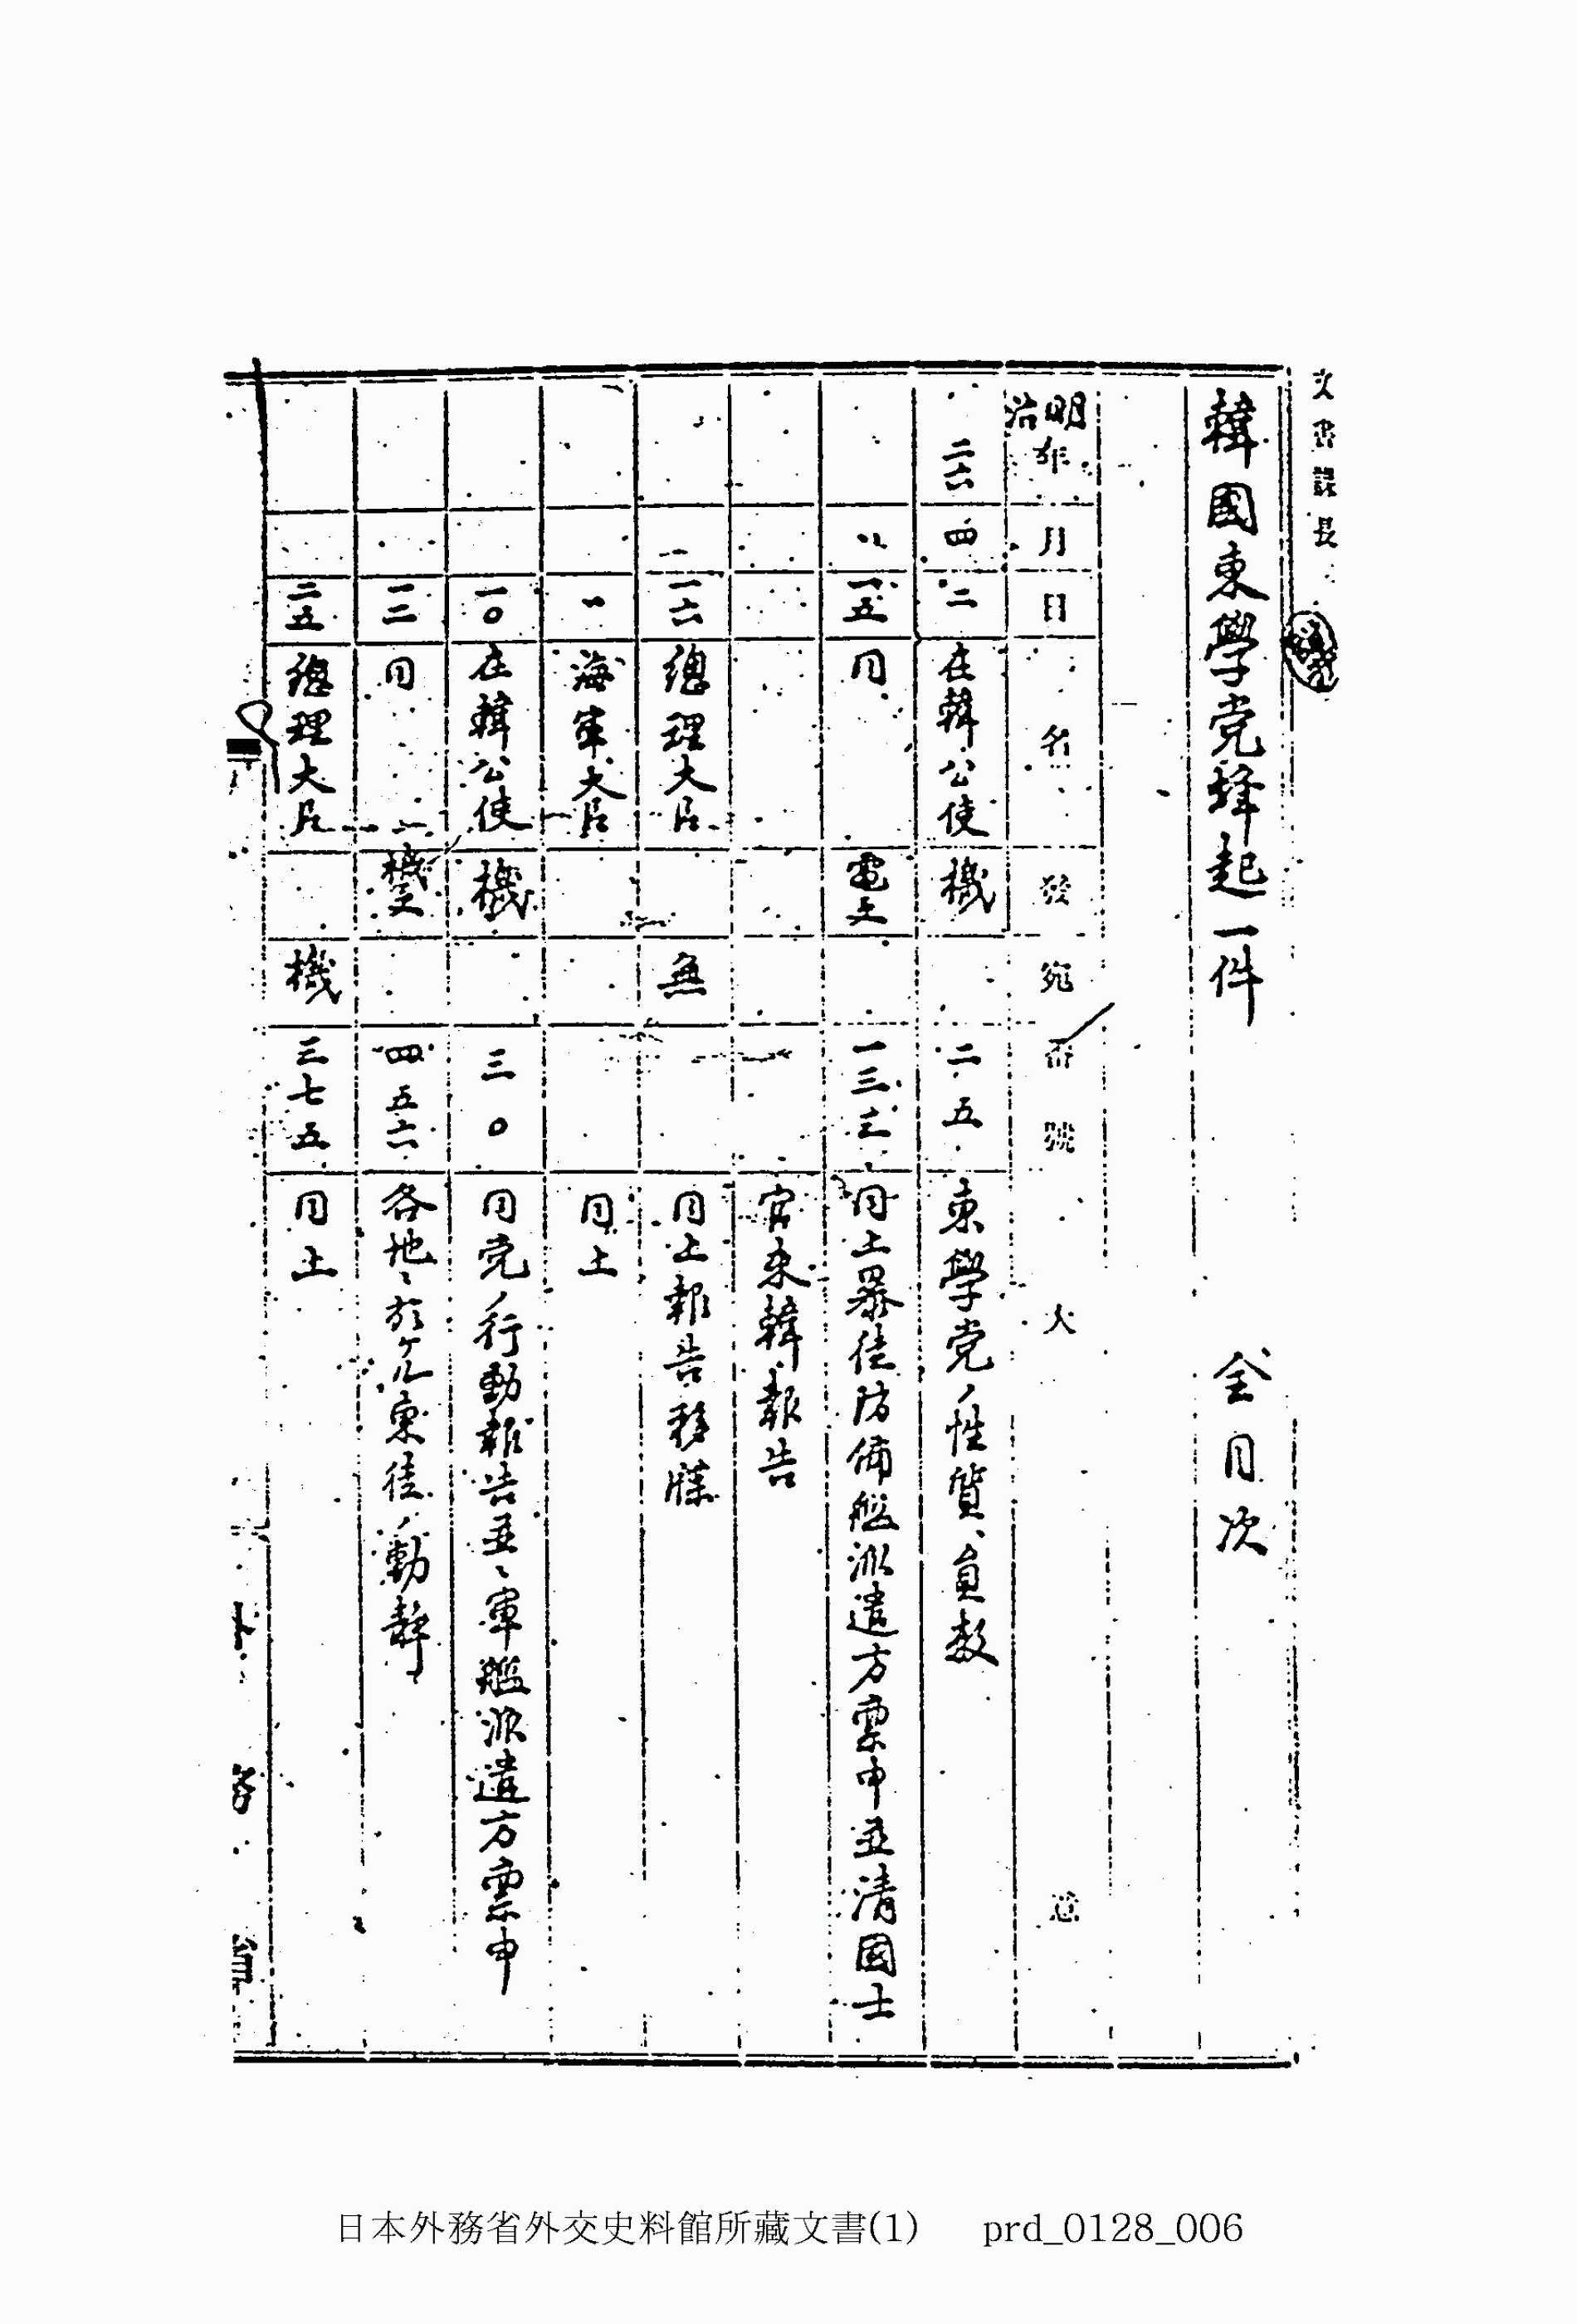 文書課長
韓國東學党蜂起一件 仝目次
明治年 月 日 名 發 宛 番號 大 意
二六 四 二 在韓公使 機 二五 東學党ノ性質、員数
八 一五 同 電 一三三 同上暴徒防備艦派遣方稟申並清國士
官来韓報告
一六 總理大臣 無 同上報告移牒
海軍大臣 同上
一〇 在韓公使 機 三〇 同党ノ行動報告並ニ軍艦派遣方稟申
一二 同 機 四五六 各地ニ於ケル東徒ノ動静
二五 總理大臣 機 三七五 同上
日本外務省外交史料館所藏文書(1) prd_0128_006